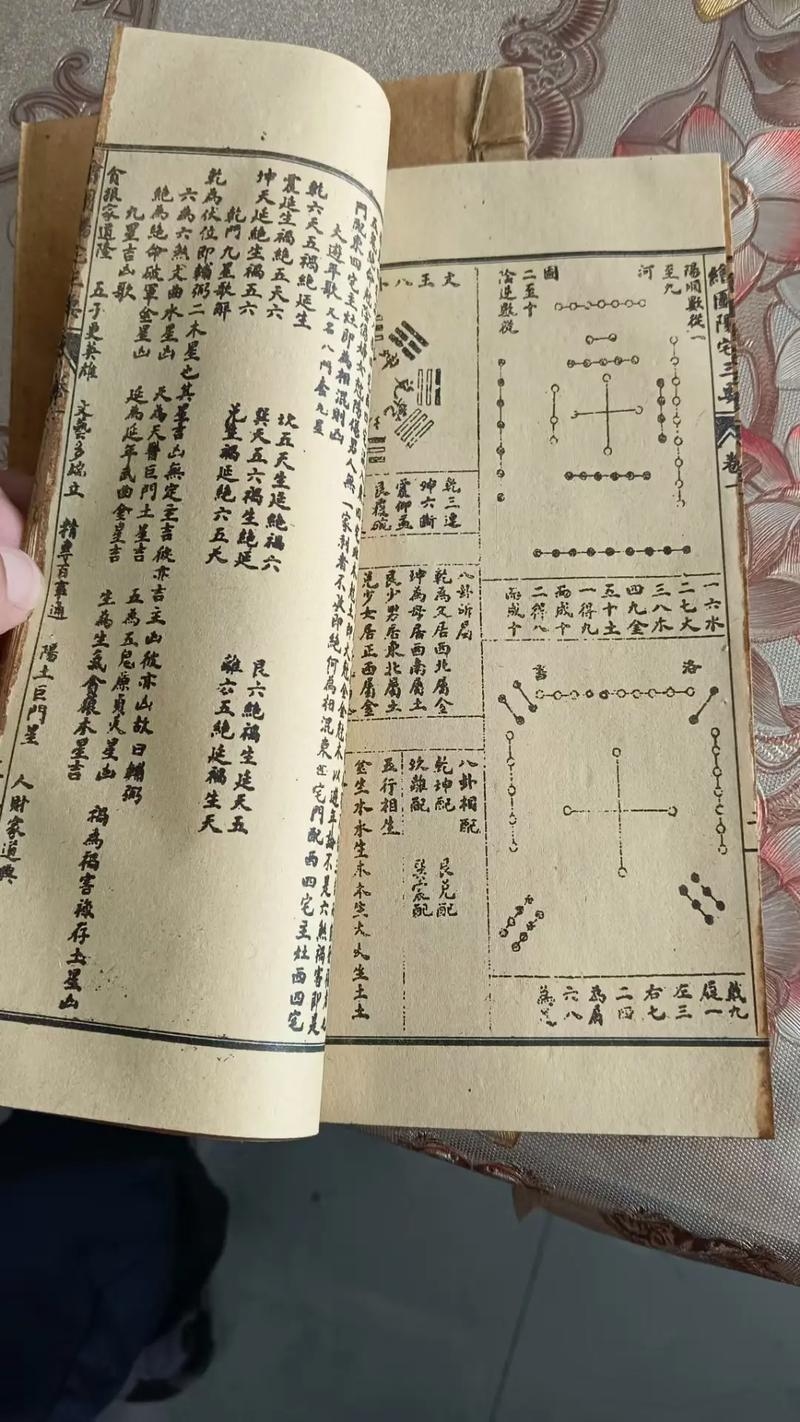 繪圖陽宅三要
卷一
陽順數從一
至九
河
圖
二至十
陰逆數從
一六水
二七火
三八木
四九金
五十土
一得九
而成十
二得八
而成十
洛
書
戴九
履一
左三
右七
二四
為肩
六八
為足
文王八
乾三連
坤六斷
震仰盂
艮覆碗
八卦所屬
乾為父居西北屬金
坤為母居西南屬土
艮少男居東北屬土
兌少女居正西屬金
八卦相配
乾坤配 艮兌配
坎離配 巽震配
五行相生
金生水水生木木生火火生土土
門配東四宅主灶即為相混則凶
大遊年歌 又名八門套九星
乾六天五禍絕延生
坎五天生延絕禍六
艮六絕禍生延天五
震延生禍絕五天六
巽天五六禍生絕延
離六五絕延禍生天
坤天延絕生禍五六
兌生禍延絕六五天
乾門九星歌解
乾為伏位即輔弼二木星也其星吉凶無定主吉彼亦吉主凶彼亦凶故曰輔弼
六為六煞文曲水星凶 天為天醫巨門土星吉 五為五鬼廉貞火星凶 禍為禍害祿存土星凶
絕為絕命破軍金星凶 延為延年武曲金星吉 生為生氣貪狼木星吉
九星吉凶歌
貪狼家道隆 五子更英雄 文藝多端立 精專百事通 陽土巨門星 人財家道興